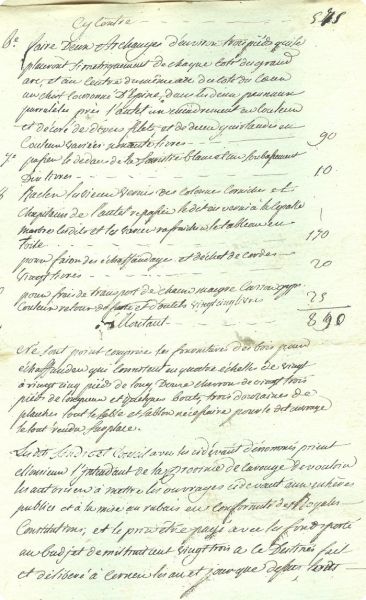 Cy contre 575
6.e faire Deux Archanges d'environ trois pieds qui se
placeront simetriquement de chaque coté du grand
arc, et au Centre du même arc du coté du Cœur
un chort couronne D'Epine, dans les deux
paralèles près l'autel un en Couleur
et décoré de divers filets, et de deux guirlandes en
Couleur variées nonante livres 90
7.o papier le dedans de la blanc et un soubapement
Dix livres 10
Racler les vieux vernis des colonnes corniches et
Chapitaux de l'autel repasser le det au vernis à le
marbre lesdits et les vases rafraichir le tableau en
toile 170
pour façon des échaffaudages et déchet de cordes
vingt livres 20
pour frais de transport de chaux maigre
Couleur retour de et d'outils vingt cinq livres 25
Montant 890
Ne sont point comprises les fournitures des bois pour
échaffauder qui consistent en quatre échelles de vingt
à vingt cinq pieds de long, Douze chevron de vingt trois
pieds de longueur et quelques bouts, trois douzaines de
planches tout le sable et sablon nécessaire pour le dit ouvrage
le tout rendu sur place.
Les dits Sindic et Conseil avec les cidevant dénommés prient
Monsieur l'Intendant de la province de Carouge de vouloir
les autoriser à mettre les ouvrages cidevant aux enchères
publics et à la mise au rabais en conformité des Royales
Constitutions, et le prix être payé avec les fonds porté
au budjet de mil huit cent vingt trois a ce Destinés fait
et délibéré à Cernex les an et jour que dessus